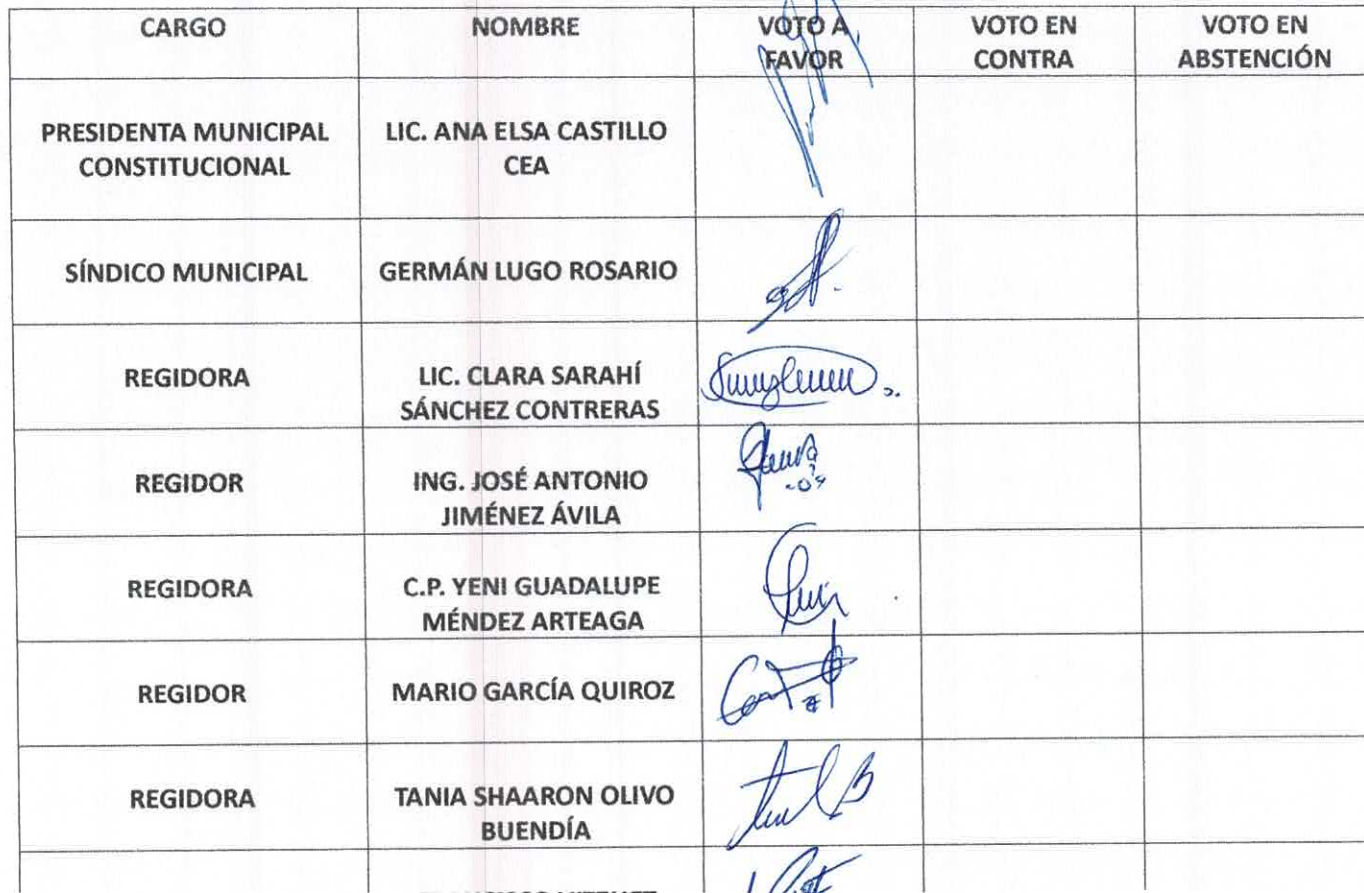 CARGO
NOMBRE
VOTO A
FAVOR
VOTO EN
CONTRA
VOTO EN
ABSTENCIÓN
PRESIDENTA MUNICIPAL
CONSTITUCIONAL
LIC. ANA ELSA CASTILLO
CEA
SÍNDICO MUNICIPAL
GERMÁN LUGO ROSARIO
REGIDORA
LIC. CLARA SARAHÍ
SÁNCHEZ CONTRERAS
REGIDOR
ING. JOSÉ ANTONIO
JIMÉNEZ ÁVILA
REGIDORA
C.P. YENI GUADALUPE
MÉNDEZ ARTEAGA
REGIDOR
MARIO GARCÍA QUIROZ
REGIDORA
TANIA SHAARON OLIVO
BUENDÍA